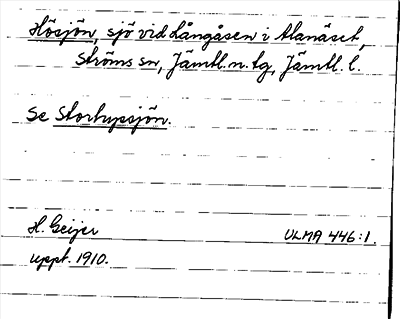 Hösjön, sjö vid Långåsen i Alanäset,
Ströms sn, Jämtl. n. tg, Jämtl. l.
Se Storhypsjön.
H. Geijer ULMA 446:1.
uppt. 1910.